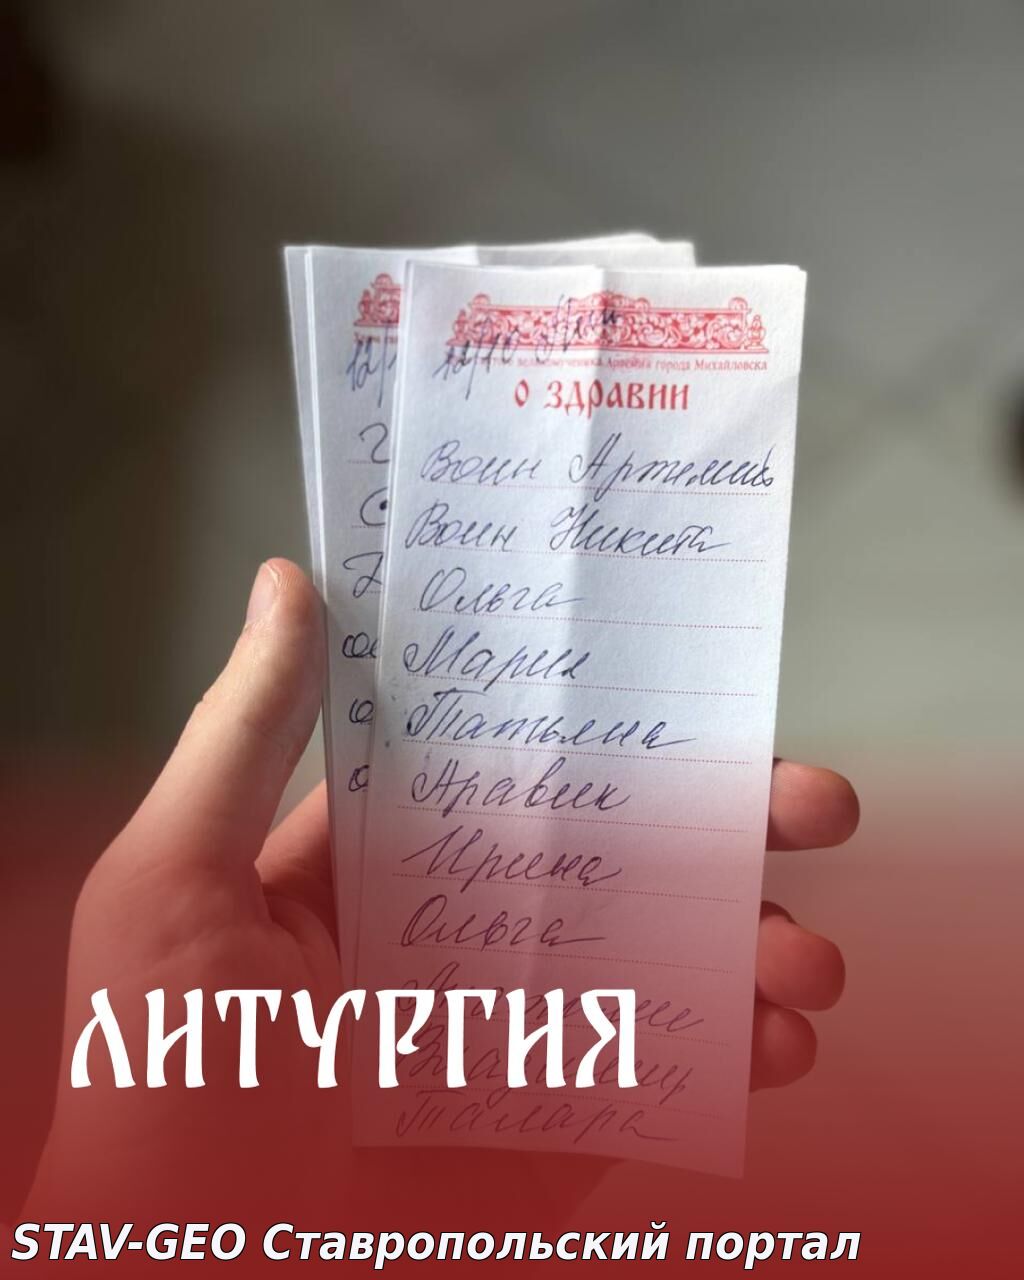 12/10
великомученика Арсения города Михайловска
о здравии
Воин Артемий
Воин Никита
Ольга
Мария
Татьяна
Аравик
Ирина
Ольга
Владимир
Тамара
ЛИТУРГИЯ
STAV-GEO Ставропольский портал